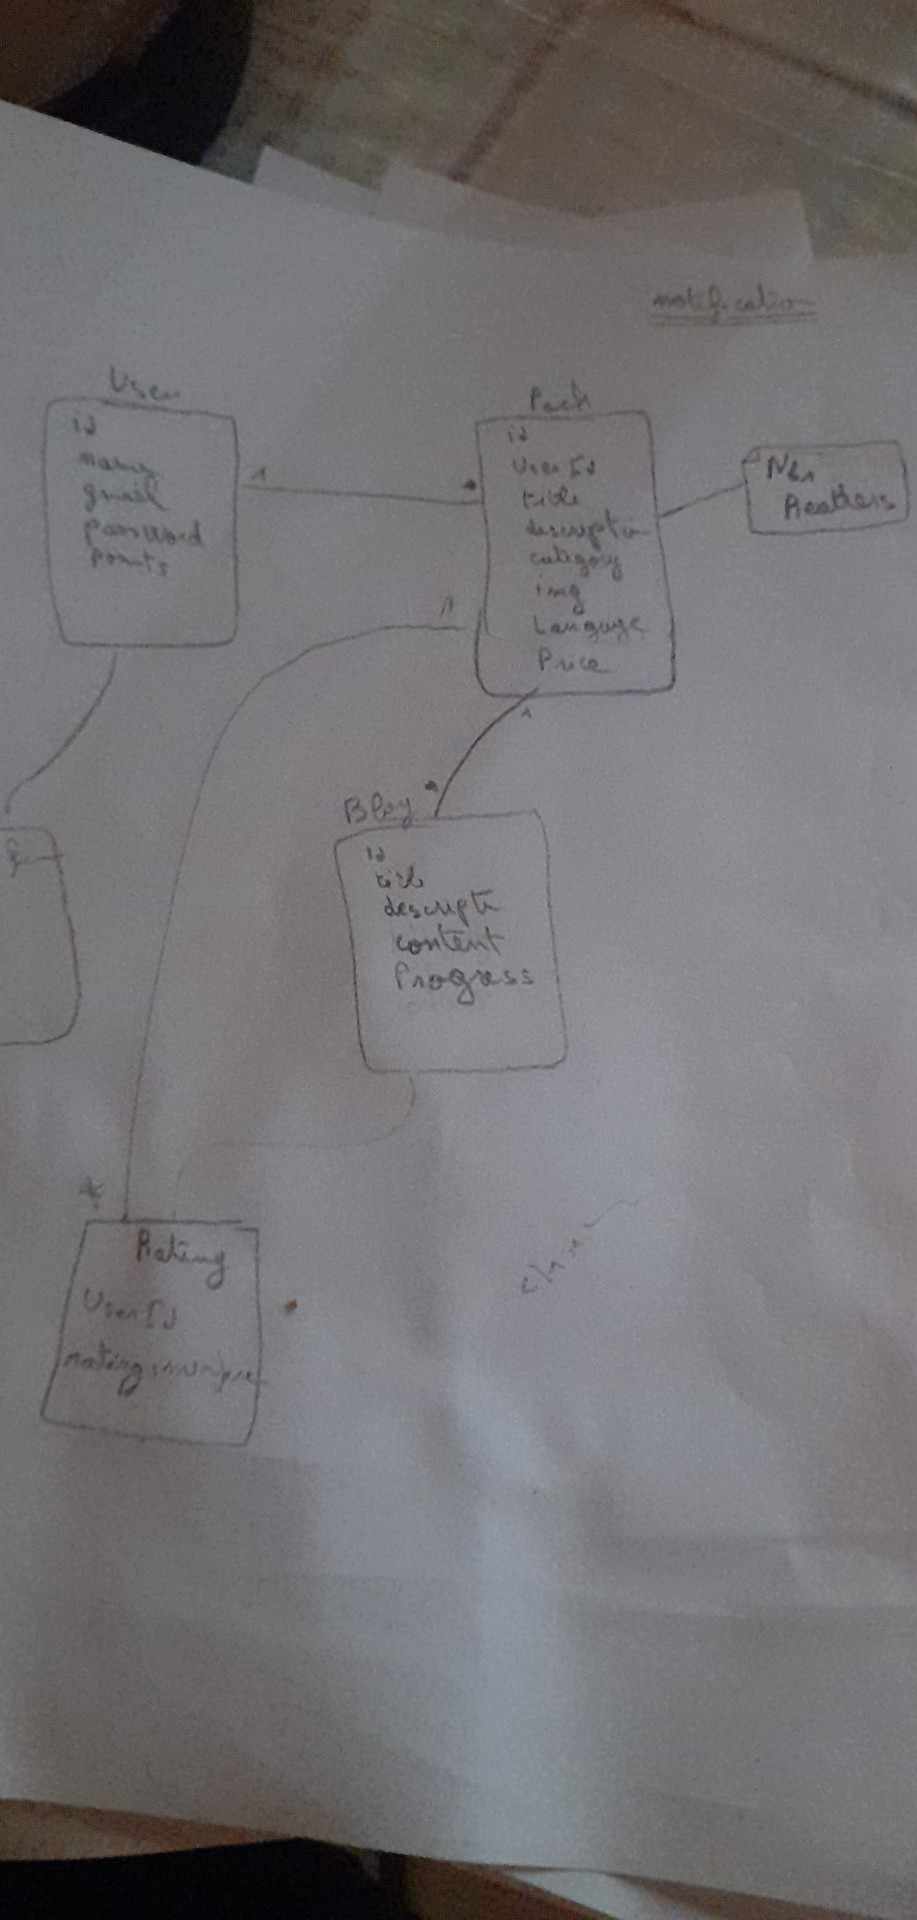 notification
User
id
name
gmail
password
points
1
*
Pack
id
UserId
title
description
category
img
Language
Price
Nbr
1
1
*
Blog
id
title
descripti
content
Progress
*
Rating
UserId